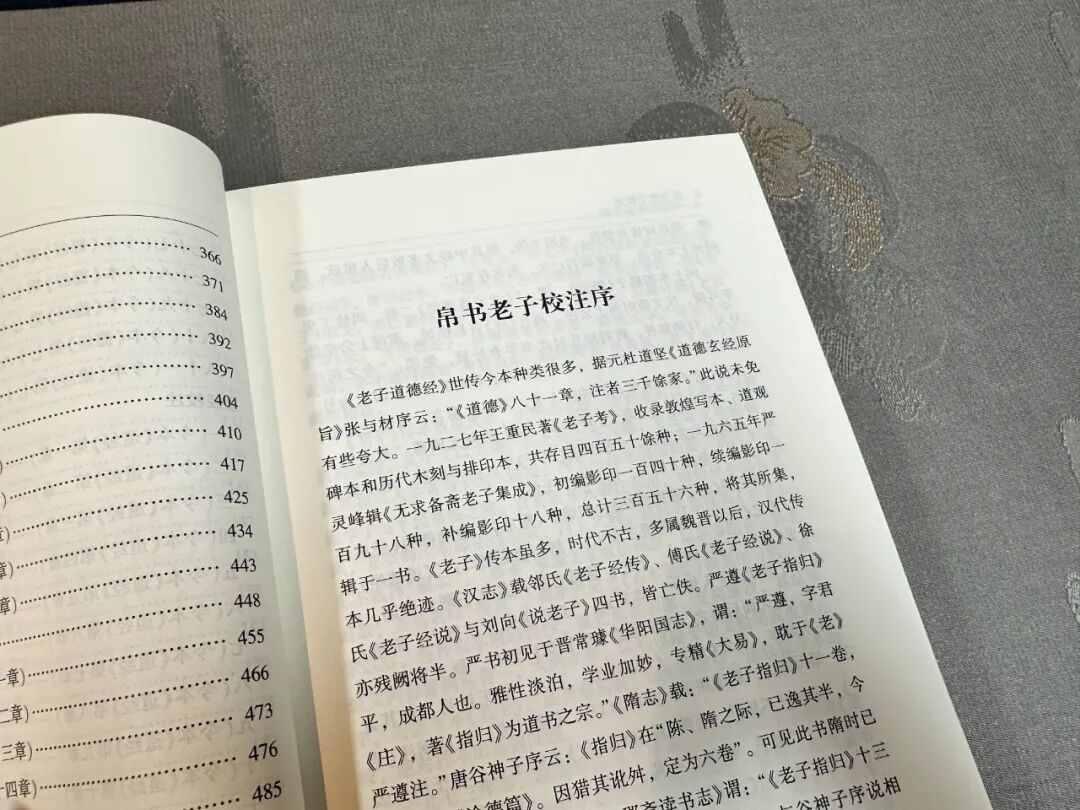 366
371
384
392
397
404
410
417
425
434
443
448
455
章)466
二章)473
三章)476
十四章)485
帛书老子校注序
《老子道德经》世传今本种类很多，据元杜道坚《道德玄经原
旨》张与材序云：“《道德》八十一章，注者三千馀家。”此说未免
有些夸大。一九二七年王重民著《老子考》，收录敦煌写本、道观
碑本和历代木刻与排印本，共存目四百五十馀种；一九六五年严
灵峰辑《无求备斋老子集成》，初编影印一百四十种，续编影印一
百九十八种，补编影印十八种，总计三百五十六种，将其所集，
辑于一书。《老子》传本虽多，时代不古，多属魏晋以后，汉代传
本几乎绝迹。《汉志》载邻氏《老子经传》、傅氏《老子经说》、徐
氏《老子经说》与刘向《说老子》四书，皆亡佚。严遵《老子指归》
亦残阙将半。严书初见于晋常璩《华阳国志》，谓：“严遵，字君
平，成都人也。雅性淡泊，学业加妙，专精《大易》，耽于《老》
《庄》，著《指归》为道书之宗。”《隋志》载：“《老子指归》十一卷，
严遵注。”唐谷神子序云：《指归》在“陈、隋之际，已逸其半，今
论德篇》。因猎其讹舛，定为六卷”。可见此书隋时已
斋读书志》谓：“《老子指归》十三
谷神子序说相